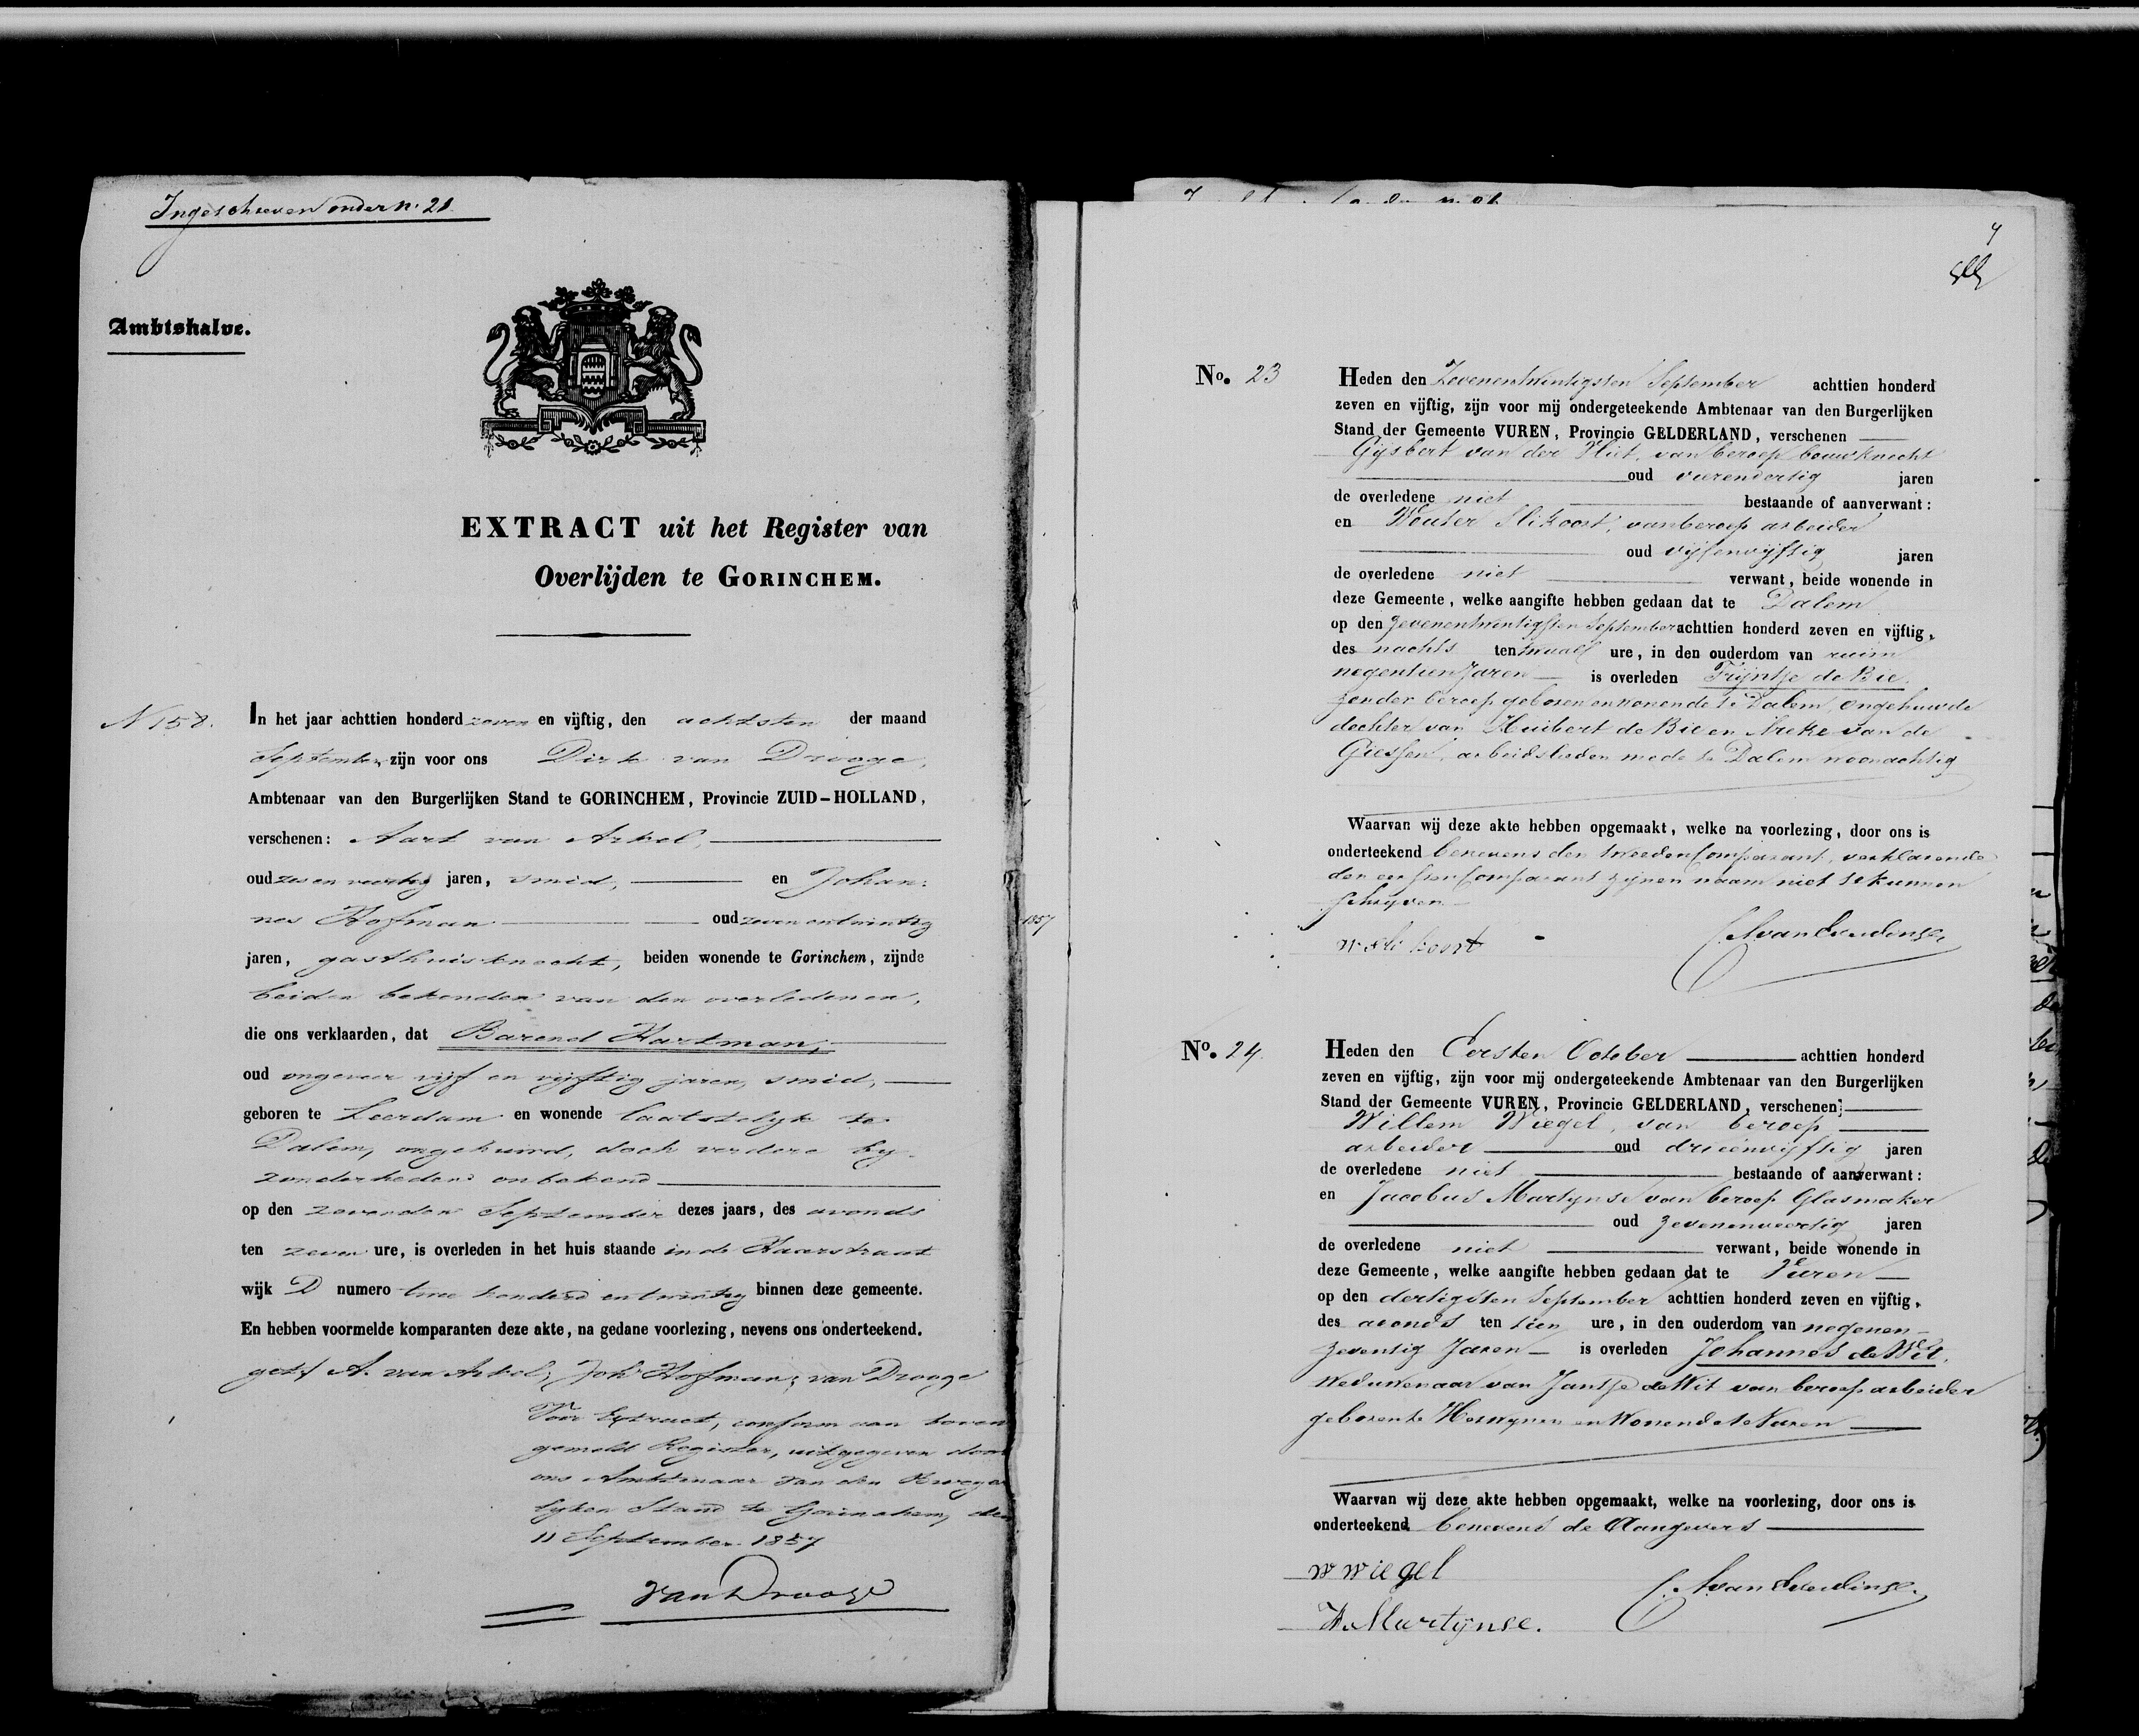 Ingeschreven onder n. 21
Ambtshalve.
EXTRACT uit het Register van
Overlijden te GORINCHEM.
N 158.
In het jaar achttien honderd zeven en vijftig, den achtsten der maand
September zijn voor ons Dirk van Drooge,
Ambtenaar van den Burgerlijken Stand te GORINCHEM, Provincie ZUID-HOLLAND,
verschenen: Aart van Arkel,
oud zes en veertig jaren, smid, en Johan:
nes Hofman oud zeven en twintig
jaren, gasthuisknecht, beiden wonende te Gorinchem, zijnde
beiden bekenden van den overledenen,
die ons verklaarden, dat Barend Hartman,
oud ongeveer vijf en vijftig jaren, smid,
geboren te Leerdam en wonende laatstelijk te
Dalem, ongehuwd, doch verdere by-
zonderheden onbekend
op den zevenden September dezes jaars, des avonds
ten zeven ure, is overleden in het huis staande in de Haarstraat
wijk D numero twee honderd en twintig binnen deze gemeente.
En hebben voormelde komparanten deze akte, na gedane voorlezing, nevens ons onderteekend.
get/ A. van Arkel, Joh Hofman, van Drooge
Voor Extract, conform aan boven
gemeld Register, uitgegeven door
ons Ambtenaar van den Burger
lyken Stand te Gorinchem, den
11 September 1857
van Drooge
1857
7
No. 23
Heden den Zevenentwintigsten September achttien honderd
zeven en vijftig, zijn voor mij ondergeteekende Ambtenaar van den Burgerlijken
Stand der Gemeente VUREN, Provincie GELDERLAND, verschenen
Gijsbert van der Vliet, van beroep bouwknecht
oud vierendertig jaren
de overledene niet bestaande of aanverwant:
en Wouter Slikoort, van beroep arbeider
oud vijfenvijftig jaren
de overledene niet verwant, beide wonende in
deze Gemeente, welke aangifte hebben gedaan dat te Dalem
op den zevenentwintigsten September achttien honderd zeven en vijftig,
des nachts ten twaalf ure, in den ouderdom van ruim
negentien Jaren is overleden Trijntje de Bie,
zonder beroep geboren en wonende te Dalem, ongehuwde
dochter van Huibert de Bie en Areke van de
Giessen, arbeidslieden mede te Dalem woonachtig
Waarvan wij deze akte hebben opgemaakt, welke na voorlezing, door ons is
onderteekend benevens den tweeden Comparant, verklarende
den eersten Comparant zijnen naam niet te kunnen
schrijven
w sli koort
No. 24.
Heden den Eersten October achttien honderd
zeven en vijftig, zijn voor mij ondergeteekende Ambtenaar van den Burgerlijken
Stand der Gemeente VUREN, Provincie GELDERLAND, verschenen:
Willem Wiegel, van beroep
arbeider oud drieënvijftig jaren
de overledene niet bestaande of aanverwant:
en Jacobus Martijnse van beroep Glasmaker
oud zevenenveertig jaren
de overledene niet verwant, beide wonende in
deze Gemeente, welke aangifte hebben gedaan dat te Vuren
op den dertigsten September achttien honderd zeven en vijftig,
des avonds ten tien ure, in den ouderdom van negenen-
zeventig Jaren is overleden Johannes de Wit,
Weduwenaar van Jantje de Wit van beroep arbeider
geboren te Herwynen en Wonende te Vuren
Waarvan wij deze akte hebben opgemaakt, welke na voorlezing, door ons is
onderteekend benevens de Aangevers
w wiegel
Martijnse.